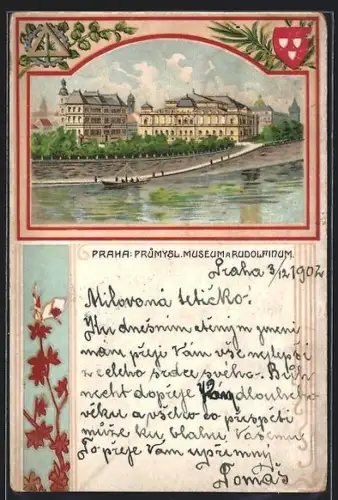 PRAHA: PRŮMYSL. MUSEUM A RUDOLFINUM.
Praha 3/12 1902
Milovaná tetičko!
Ku dnešním ctěným jmeni
nám přeji Vám vše nejlepší
z celého srdce svého. Bůh
nechť dopřeje Vám dlouhého
věku a všeho co přispěti
může ku blahu Vašemu
To přeje Vám upřímný
Tomáš